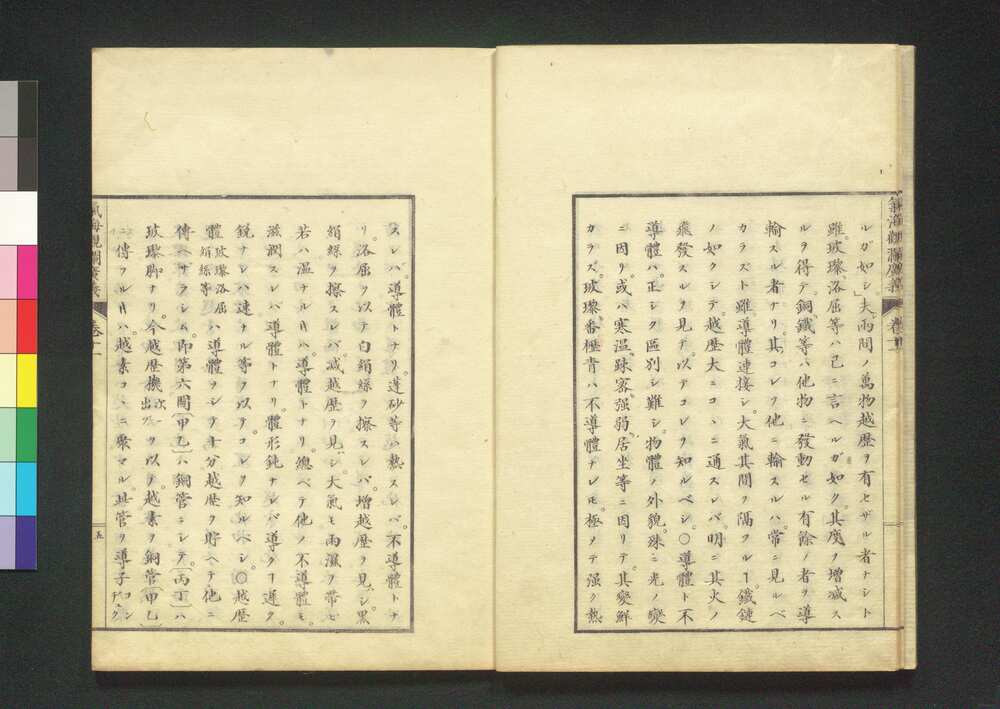 氣海觀瀾廣義
卷十一
ルガ如シ」夫兩間ノ萬物越歴ヲ有セザル者ナシト
雖玻瓈洛屈等ハ已ニ言ヘルガ如ク其度ヲ増減ス
ルヲ得テ銅鐵等ハ他物ニ發動セル有餘ノ者ヲ導
輸スル者ナリ其コレヲ他ニ輸スルハ常ニ見ルベ
カラズト雖導體連接シ大氣其間ヲ隔ツルヿ鐵鏈
ノ如クシテ越歴大ニコヽニ通スレバ明ニ其火ノ
飛發スルヲ見テ以テコレヲ知ルベシ○導體ト不
導體ハ正シク區別シ難シ物體ノ外貌殊ニ光ノ變
ニ因リ或ハ寒温疎密强弱居坐等ニ因リテ其變鮮
カラズ玻瓈番瀝青ハ不導體ナレ𪜈極メテ强ク熱
スレバ導體トナリ蓬砂等ハ熱スレバ不導體トナ
リ洛屈ヲ以テ白絹絲ヲ擦スレバ增越歴ヲ見シ黒
絹絲ヲ擦スレバ減越歴ヲ見シ大氣モ雨濕ヲ帶ビ
若ハ温ナル𪜈ハ導體トナリ總ベテ他ノ不導體モ
滋潤スレバ導體トナリ體形鈍ナレバ導クヿ遲ク
鋭ナレバ速ナル等ヲ以テコレヲ知ルベシ○越歴
體玻瓈洛屈絹絲等ハ導體ヲシテ十分越歴ヲ貯ヘテ他ニ
傳ヘザラシム即第六圖〔甲乙〕ハ銅管ニシテ〔丙丁〕ハ
玻瓈脚ナリ今越歴機次出ヲ以テ越素ヲ銅管〔甲乙〕
ニ傳フル𪜈ハ越素コヽニ聚マル此管ヲ導子コンヂュク
氣海觀瀾廣義
卷十一
五